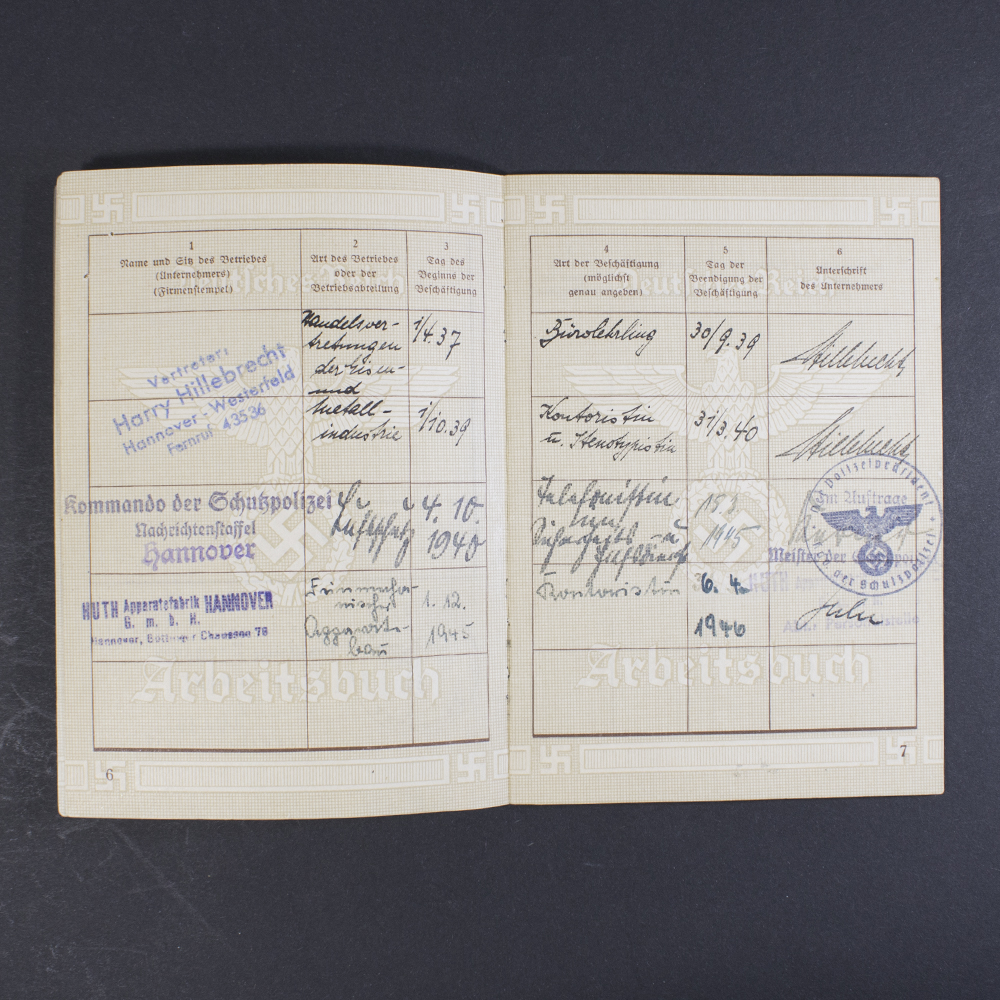 1
Name und Sitz des Betriebes
(Unternehmers)
(Firmenstempel)
2
Art des Betriebes
oder der
Betriebsabteilung
3
Tag des
Beginns der
Beschäftigung
Vertreter:
Harry Hillebrecht
Hannover-Westerfeld
Fernruf 43536
Handelsver-
tretungen
der Eisen-
und
Metall-
industrie
1/4.37
1/10.39
Kommando der Schutzpolizei
Nachrichtenstaffel
Hannover
Luftschutz
4. 10.
1940
HUTH Apparatefabrik HANNOVER
G. m. b. H.
Hannover, Chaussee 78
Fernmecha-
nischer
Apparate-
bau
1. 12.
1945
Deutsches Reich
Arbeitsbuch
6
4
Art der Beschäftigung
(möglichst
genau angeben)
5
Tag der
Beendigung der
Beschäftigung
6
Unterschrift
des Unternehmers
Bürolehrling
30/9.39
Hillebrecht
Kontoristin
u. Stenotypistin
31/3.40
Hillebrecht
Telefonistin
1945
Im Auftrage
Meister der Schutzpolizei
Polizeipräsident
der Schutzpolizei
Kontoristin
6. 4.
1946
HUTH
Deutsches Reich
Arbeitsbuch
7